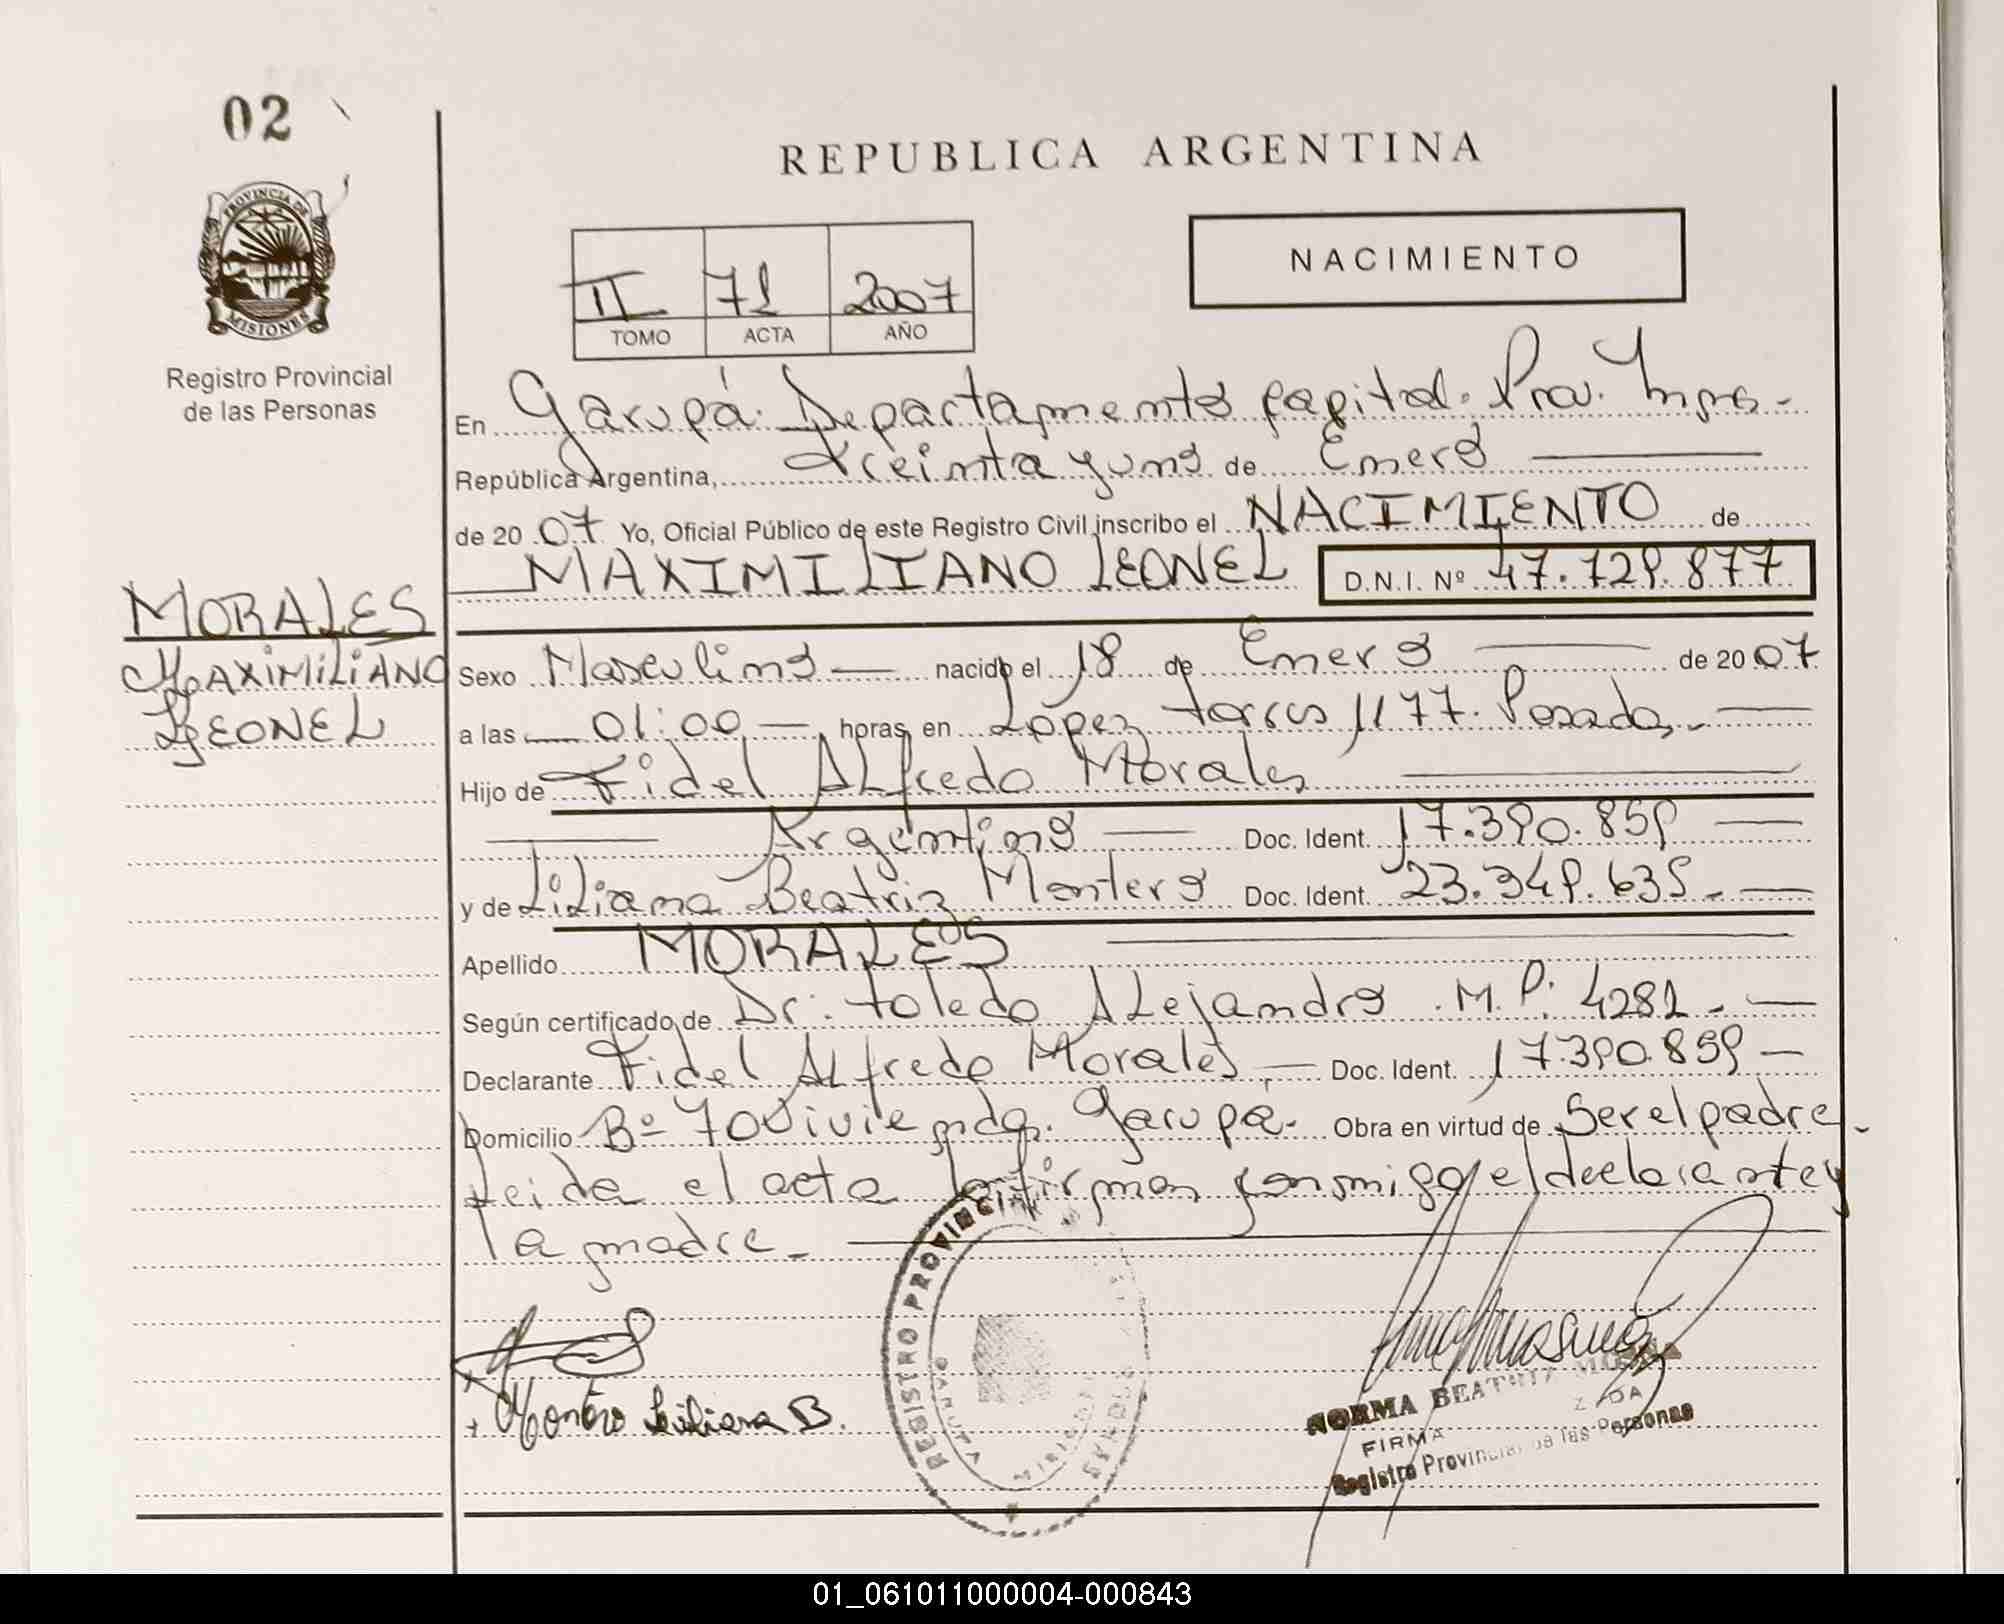 02
REPUBLICA ARGENTINA
PROVINCIA DE
MISIONES
Registro Provincial
de las Personas
II 71 2007
TOMO ACTA AÑO
NACIMIENTO
En Garupá. Departamento Capital. Prov. Mnes.-
República Argentina, treinta y uno de Enero
de 2007 Yo, Oficial Público de este Registro Civil inscribo el NACIMIENTO de
MAXIMILIANO LEONEL D.N.I. Nº 47.729.877
MORALES
MAXIMILIANO
LEONEL
Sexo Masculino nacido el 18 de Enero de 2007
a las 01:00 horas en López Torres 1177. Posadas.-
Hijo de Fidel Alfredo Morales
Argentino Doc. Ident. 17.390.859
y de Liliana Beatriz Montero Doc. Ident. 23.349.635.-
Apellido MORALES
Según certificado de Dr. Toledo Alejandro M.P. 4281.-
Declarante Fidel Alfredo Morales Doc. Ident. 17.390.859
Domicilio Bº 70 Viviendas. Garupá.- Obra en virtud de Ser el padre.
Leida el acta la firman conmigo el declarante y
la madre.-
Montero Liliana B.
REGISTRO PROVINCIAL
GARUPA
NORMA BEATRIZ
FIRMA
Registro Provincial de las Personas
01_061011000004-000843